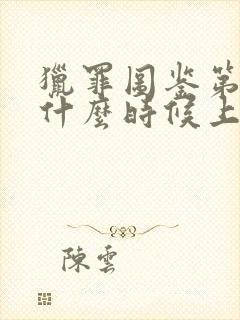 獵罪圖鉴第
什麼時候上
陳雲